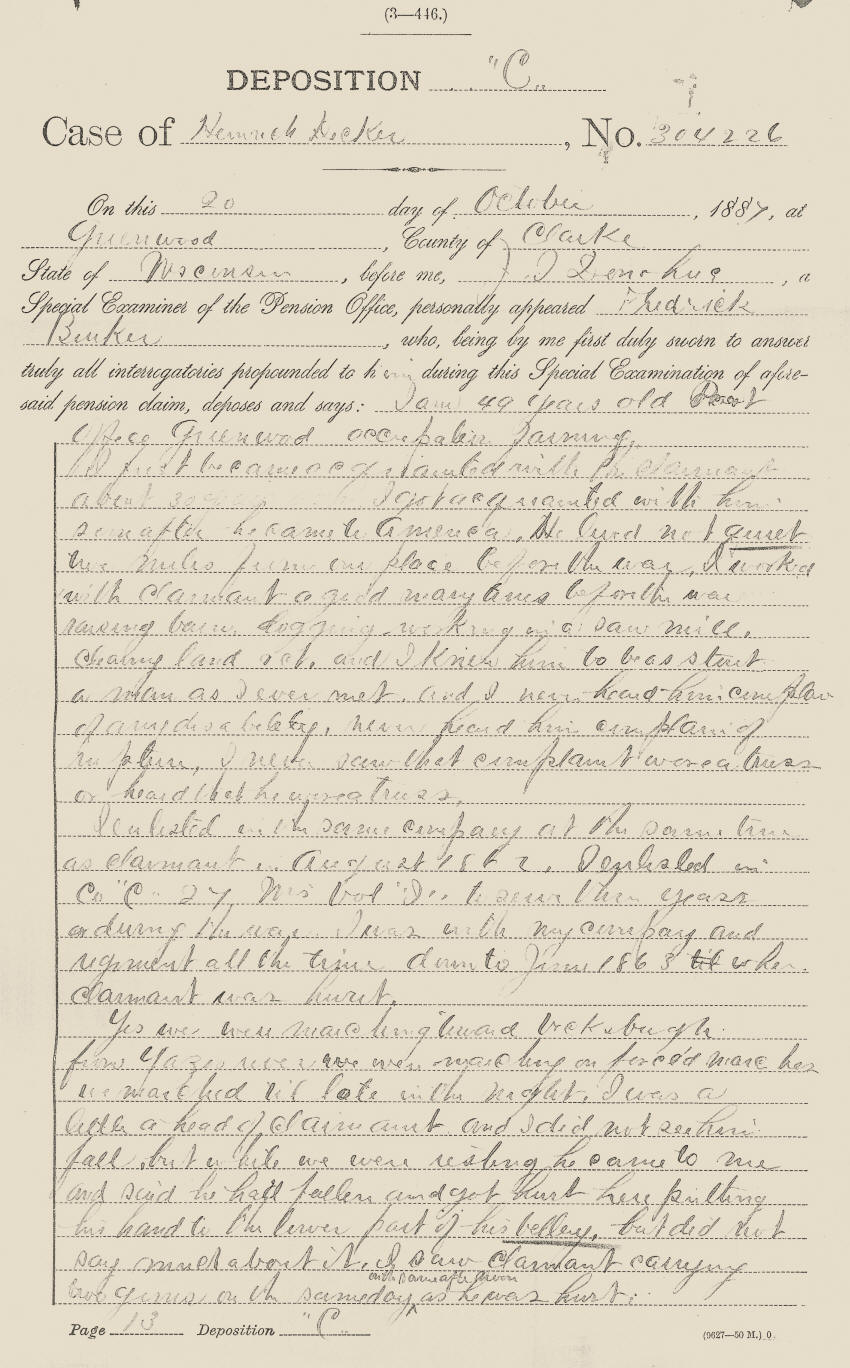 (3—446.)
DEPOSITION "C"
Case of Heinrich Decker, No. 304226
On this 20 day of October, 1887, at
Greenwood, County of Clarke
State of Wisconsin, before me, J, a
Special Examiner of the Pension Office, personally appeared Fredrick
Buker, who, being by me first duly sworn to answer
truly all interrogatories propounded to him during this Special Examination of afore-
said pension claim, deposes and says: I am 49 years old Post
office Greenwood occupation Farming.
I first became acquainted with the claimant
about I got acquainted with him
soon after he came to America. He lived not quiet
two miles from our place before the war. I worked
with claimant a good many times before the war
raising barn, logging, working in a saw mill,
clearing land ect. and I knew him to be as stout
a man as I ever met. and I never heard him complain
of any disability. never heard him complain of
rupture, I never saw that complaint wore a truss
or heard that he wore a truss.
I enlisted in the same company at the same time
as claimant in August 1862. I enlisted in
Co "C" 27, Wis Vol to serve three years
or during the war. I was with my company and
regiment all the time down to June 1863 til when
claimant was hurt.
Yes we were marching toward Vicksburgh
from Yazoo river we were marching on forced marches
we marched til late in the night. I was a
little a head of claimant and I did not see him
fall, but while we were resting he came to me
and said he had fallen and got hurt here putting
his hand to the lower part of his belley, but did not
say much about it. I saw claimant carrying
two guns on the same day as he was hurt.
Page 13 Deposition "C"
(9627—50 M.) 0.